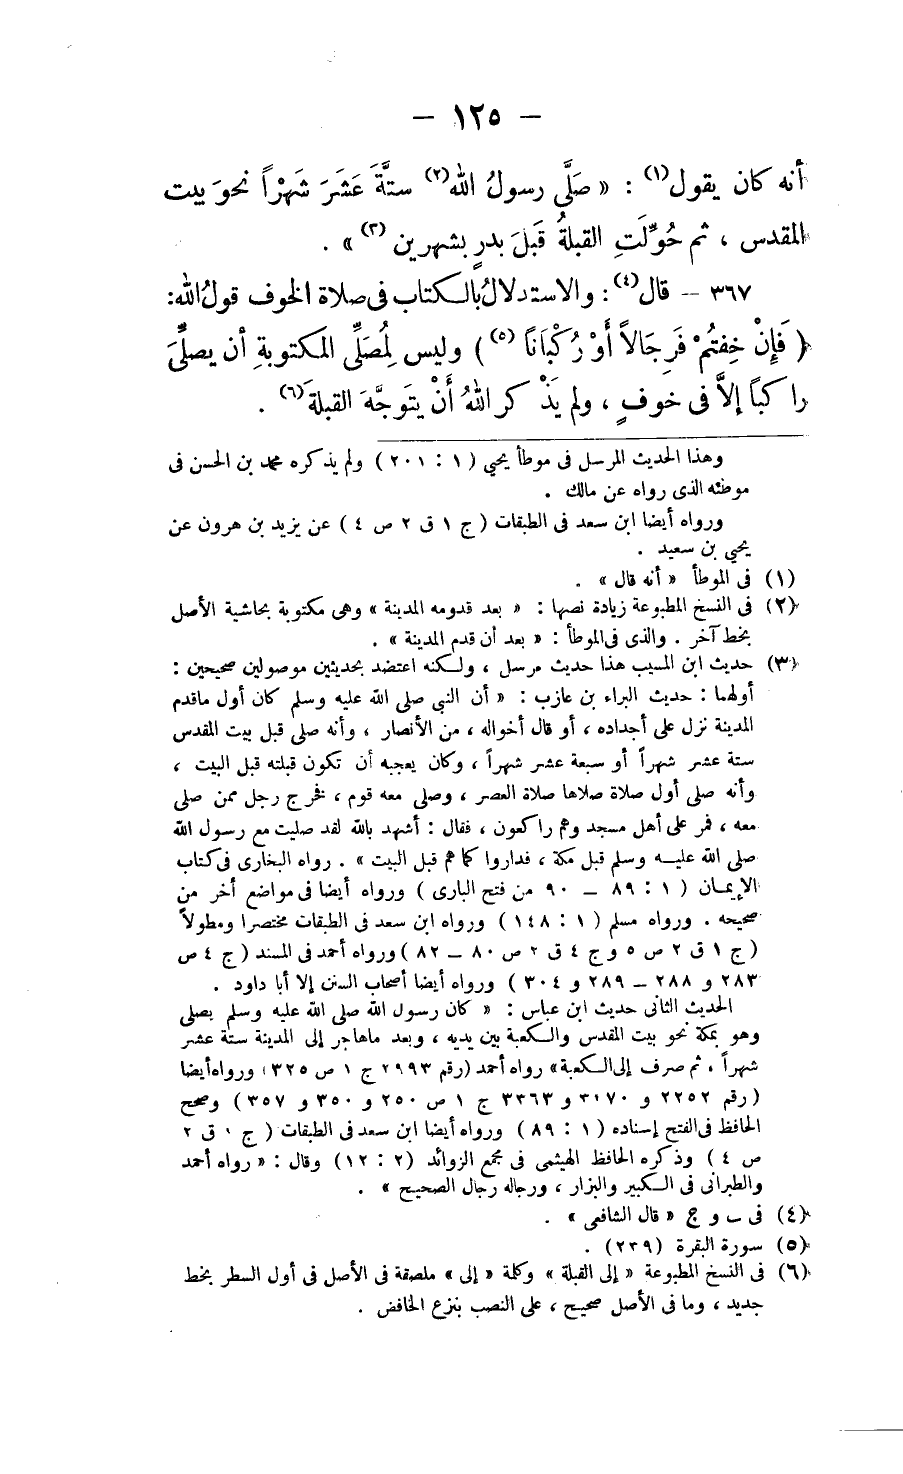 — ١٢٥ —
أنه كان يقول(١) : « صَلَّى رسولُ الله(٢) ستَّةَ عَشَرَ شَهْرًا نحوَ بيت
المقدس ، ثم حُوِّلَتِ القبلةُ قَبلَ بدرٍ بشهرين (٣) » .
٣٦٧ — قال(٤) : والاستدلالُ بالكتاب فى صلاة الخوف قولُ الله:
( فَإِنْ خِفتُمْ فَرِجَالاً أَوْ رُكْبَانًا (٥) ) وليس لِمُصَلِّى المكتوبةِ أن يصلِّىَ
راكبًا إلاَّ فى خوفٍ ، ولم يَذْكر اللهُ أَنْ يتوجَّهَ القبلةَ(٦) .
وهذا الحديث المرسل فى موطأ يحيي ( ١ : ٢٠١ ) ولم يذكره محمد بن الحسن فى
موطئه الذى رواه عن مالك .
ورواه أيضا ابن سعد فى الطبقات ( ج ١ ق ٢ ص ٤ ) عن يزيد بن هرون عن
يحيي بن سعيد .
(١) فى الموطأ « أنه قال » .
(٢) فى النسخ المطبوعة زيادة نصها : « بعد قدومه المدينة » وهى مكتوبة بحاشية الأصل
بخط آخر . والذى فى الموطأ : « بعد أن قدم المدينة » .
(٣) حديث ابن المسيب هذا حديث مرسل ، ولكنه اعتضد بحديثين موصولين صحيحين :
أولهما : حديث البراء بن عازب : « أن النبي صلى الله عليه وسلم كان أول ماقدم
المدينة نزل على أجداده ، أو قال أخواله ، من الأنصار ، وأنه صلى قبل بيت المقدس
ستة عشر شهراً أو سبعة عشر شهراً ، وكان يعجبه أن تكون قبلته قبل البيت ،
وأنه صلى أول صلاة صلاها صلاة العصر ، وصلى معه قوم ، فخرج رجل ممن صلى
معه ، فمر على أهل مسجد وهم راكعون ، فقال : أشهد بالله لقد صليت مع رسول الله
صلى الله عليه وسلم قبل مكة ، فداروا كما هم قبل البيت » . رواه البخارى فى كتاب
الإيمان ( ١ : ٨٩ — ٩٠ من فتح البارى ) ورواه أيضا فى مواضع أخر من
صحيحه . ورواه مسلم ( ١ : ١٤٨ ) ورواه ابن سعد فى الطبقات مختصرا ومطولاً
( ج ١ ق ٢ ص ٥ و ج ٤ ق ٢ ص ٨٠ — ٨٢ ) ورواه أحمد فى المسند ( ج ٤ ص
٢٨٣ و ٢٨٨ — ٢٨٩ و ٣٠٤ ) ورواه أيضا أصحاب السنن إلا أبا داود .
الحديث الثانى حديث ابن عباس : « كان رسول الله صلى الله عليه وسلم يصلى
وهو بمكة نحو بيت المقدس والكعبة بين يديه ، وبعد ماهاجر إلى المدينة ستة عشر
شهراً ، ثم صرف إلى الكعبة » رواه أحمد (رقم ٢٩٩٣ ج ١ ص ٣٢٥) ورواه أيضا
( رقم ٢٢٥٢ و ٣٢٧٠ و ٣٣٦٣ ج ١ ص ٢٥٠ و ٣٥٠ و ٣٥٧ ) وصحح
الحافظ فى الفتح إسناده ( ١ : ٨٩ ) ورواه أيضا ابن سعد فى الطبقات ( ج ١ ق ٢
ص ٤ ) وذكره الحافظ الهيثمى فى مجمع الزوائد (٢ : ١٢) وقال : « رواه أحمد
والطبرانى فى الكبير والبزار ، ورجاله رجال الصحيح » .
(٤) فى ب و ج « قال الشافعى » .
(٥) سورة البقرة (٢٣٩) .
(٦) فى النسخ المطبوعة « إلى القبلة » وكلمة « إلى » ملصقة فى الأصل فى أول السطر بخط
جديد ، وما فى الأصل صحيح ، على النصب بنزع الخافض .